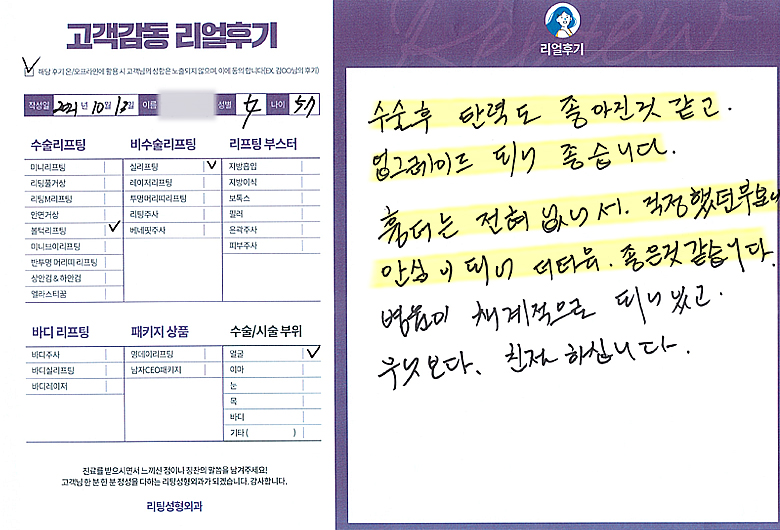 고객감동 리얼후기
해당 후기 온/오프라인에 활용 시 고객님의 성함은 노출되지 않으며, 이에 동의 합니다(EX. 김OO님의 후기)
작성일 2021년 10월 12일 이름 성별 女 나이 57
수술리프팅
미니리프팅
리팅풀거상
리팅M리프팅
안면거상
볼턱리프팅
미니브이리프팅
반투명 머리띠 리프팅
상안검 & 하안검
엘라스티꿈
비수술리프팅
실리프팅
레이저리프팅
투명머리띠리프팅
리팅주사
베네핏주사
리프팅 부스터
지방흡입
지방이식
보톡스
필러
윤곽주사
피부주사
바디 리프팅
바디주사
바디실리프팅
바디레이저
패키지 상품
원데이리프팅
남자CEO패키지
수술/시술 부위
얼굴
이마
눈
목
바디
기타 ( )
진료를 받으시면서 느끼신 점이나 칭찬의 말씀을 남겨주세요!
고객님 한 분 한 분 정성을 다하는 리팅성형외과가 되겠습니다. 감사합니다.
리팅성형외과
리얼후기
수술후 탄력도 좋아진것 같고.
업그레이드 되니 좋습니다.
흉터는 전혀 없니 서. 걱정했던부분이
안심이 되니 더더욱. 좋은것같습니다.
병원이 체계적으로 되니있고.
무엇보다. 친절하십니다.